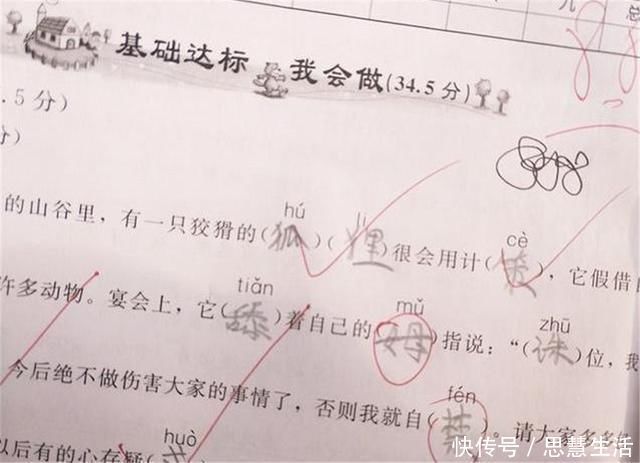 九 总
88
基础达标 我会做(34.5分)
.5分)
分)
hú lí cè
的山谷里，有一只狡猾的(狐)(狸)很会用计(策)，它假借
tiǎn mǔ zhū
许多动物。宴会上，它(舔)着自己的(姆)指说：“(诛)位，我
fén
今后绝不做伤害大家的事情了，否则我就自( )。请大家多多
huò
以后有的心存疑(
快传号／思慧生活